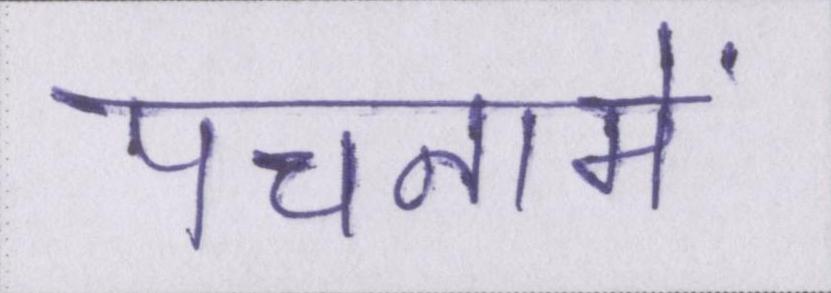 पचनामें